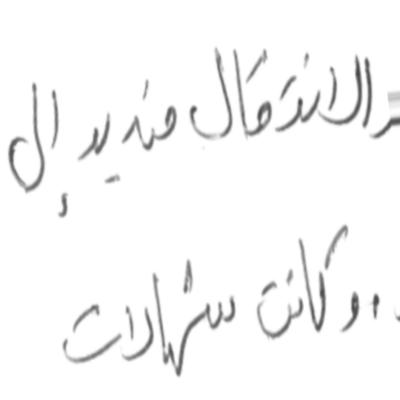 الانتقال من يد إلى
وكانت شهادات